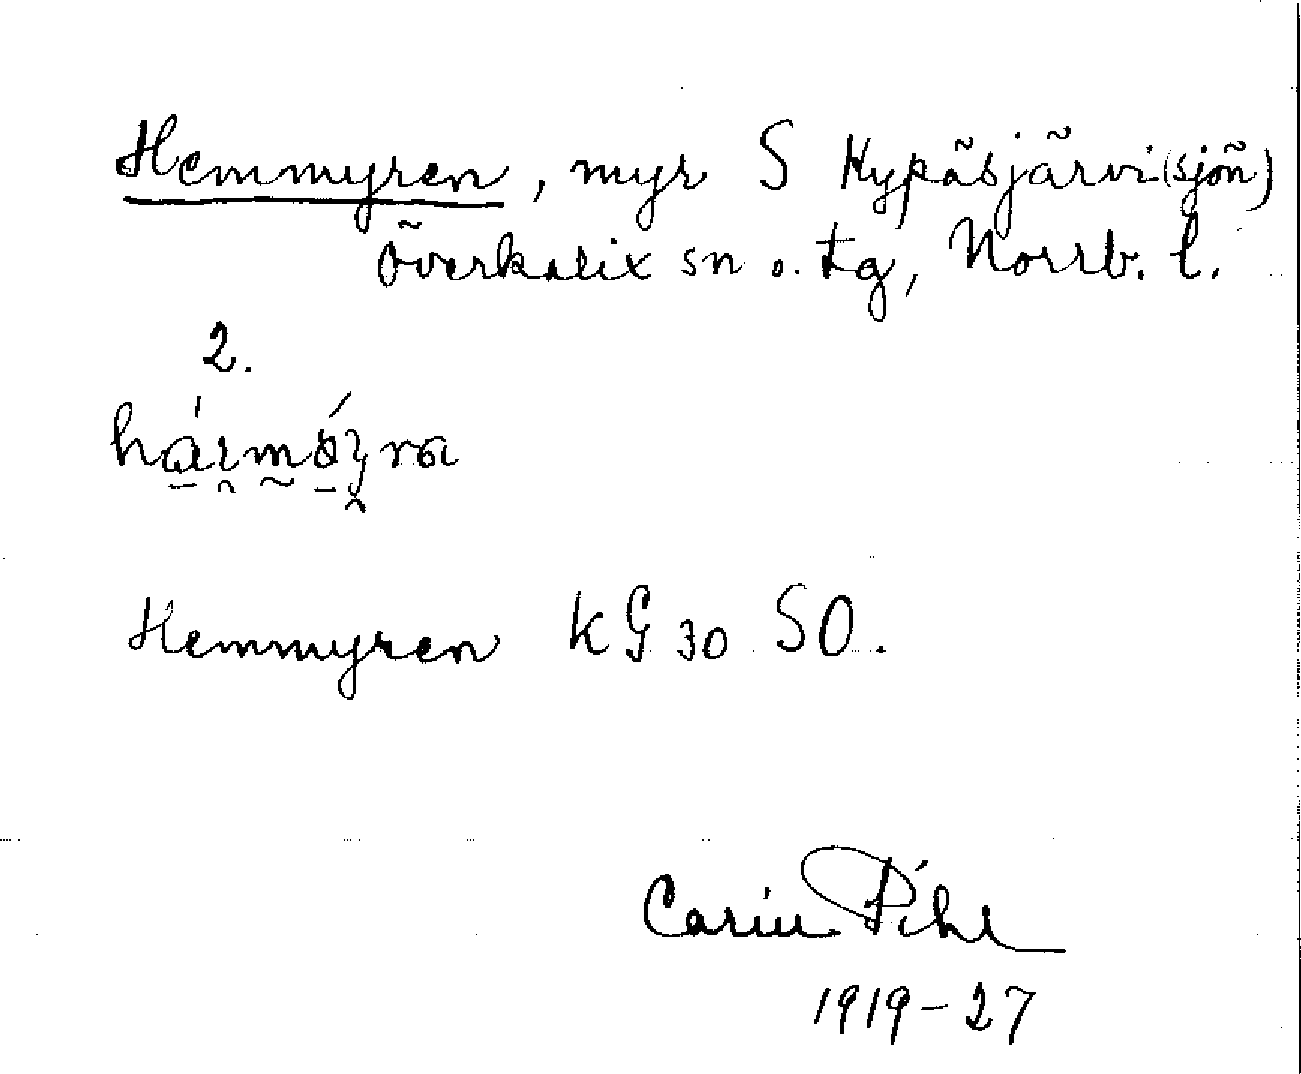 Hemmyren, myr S Hypäsjärvi (sjön)
Överkalix sn o. tg, Norrb. l.
2.
Hemmyren kG 30 SO.
Carin Pihl
1919-27